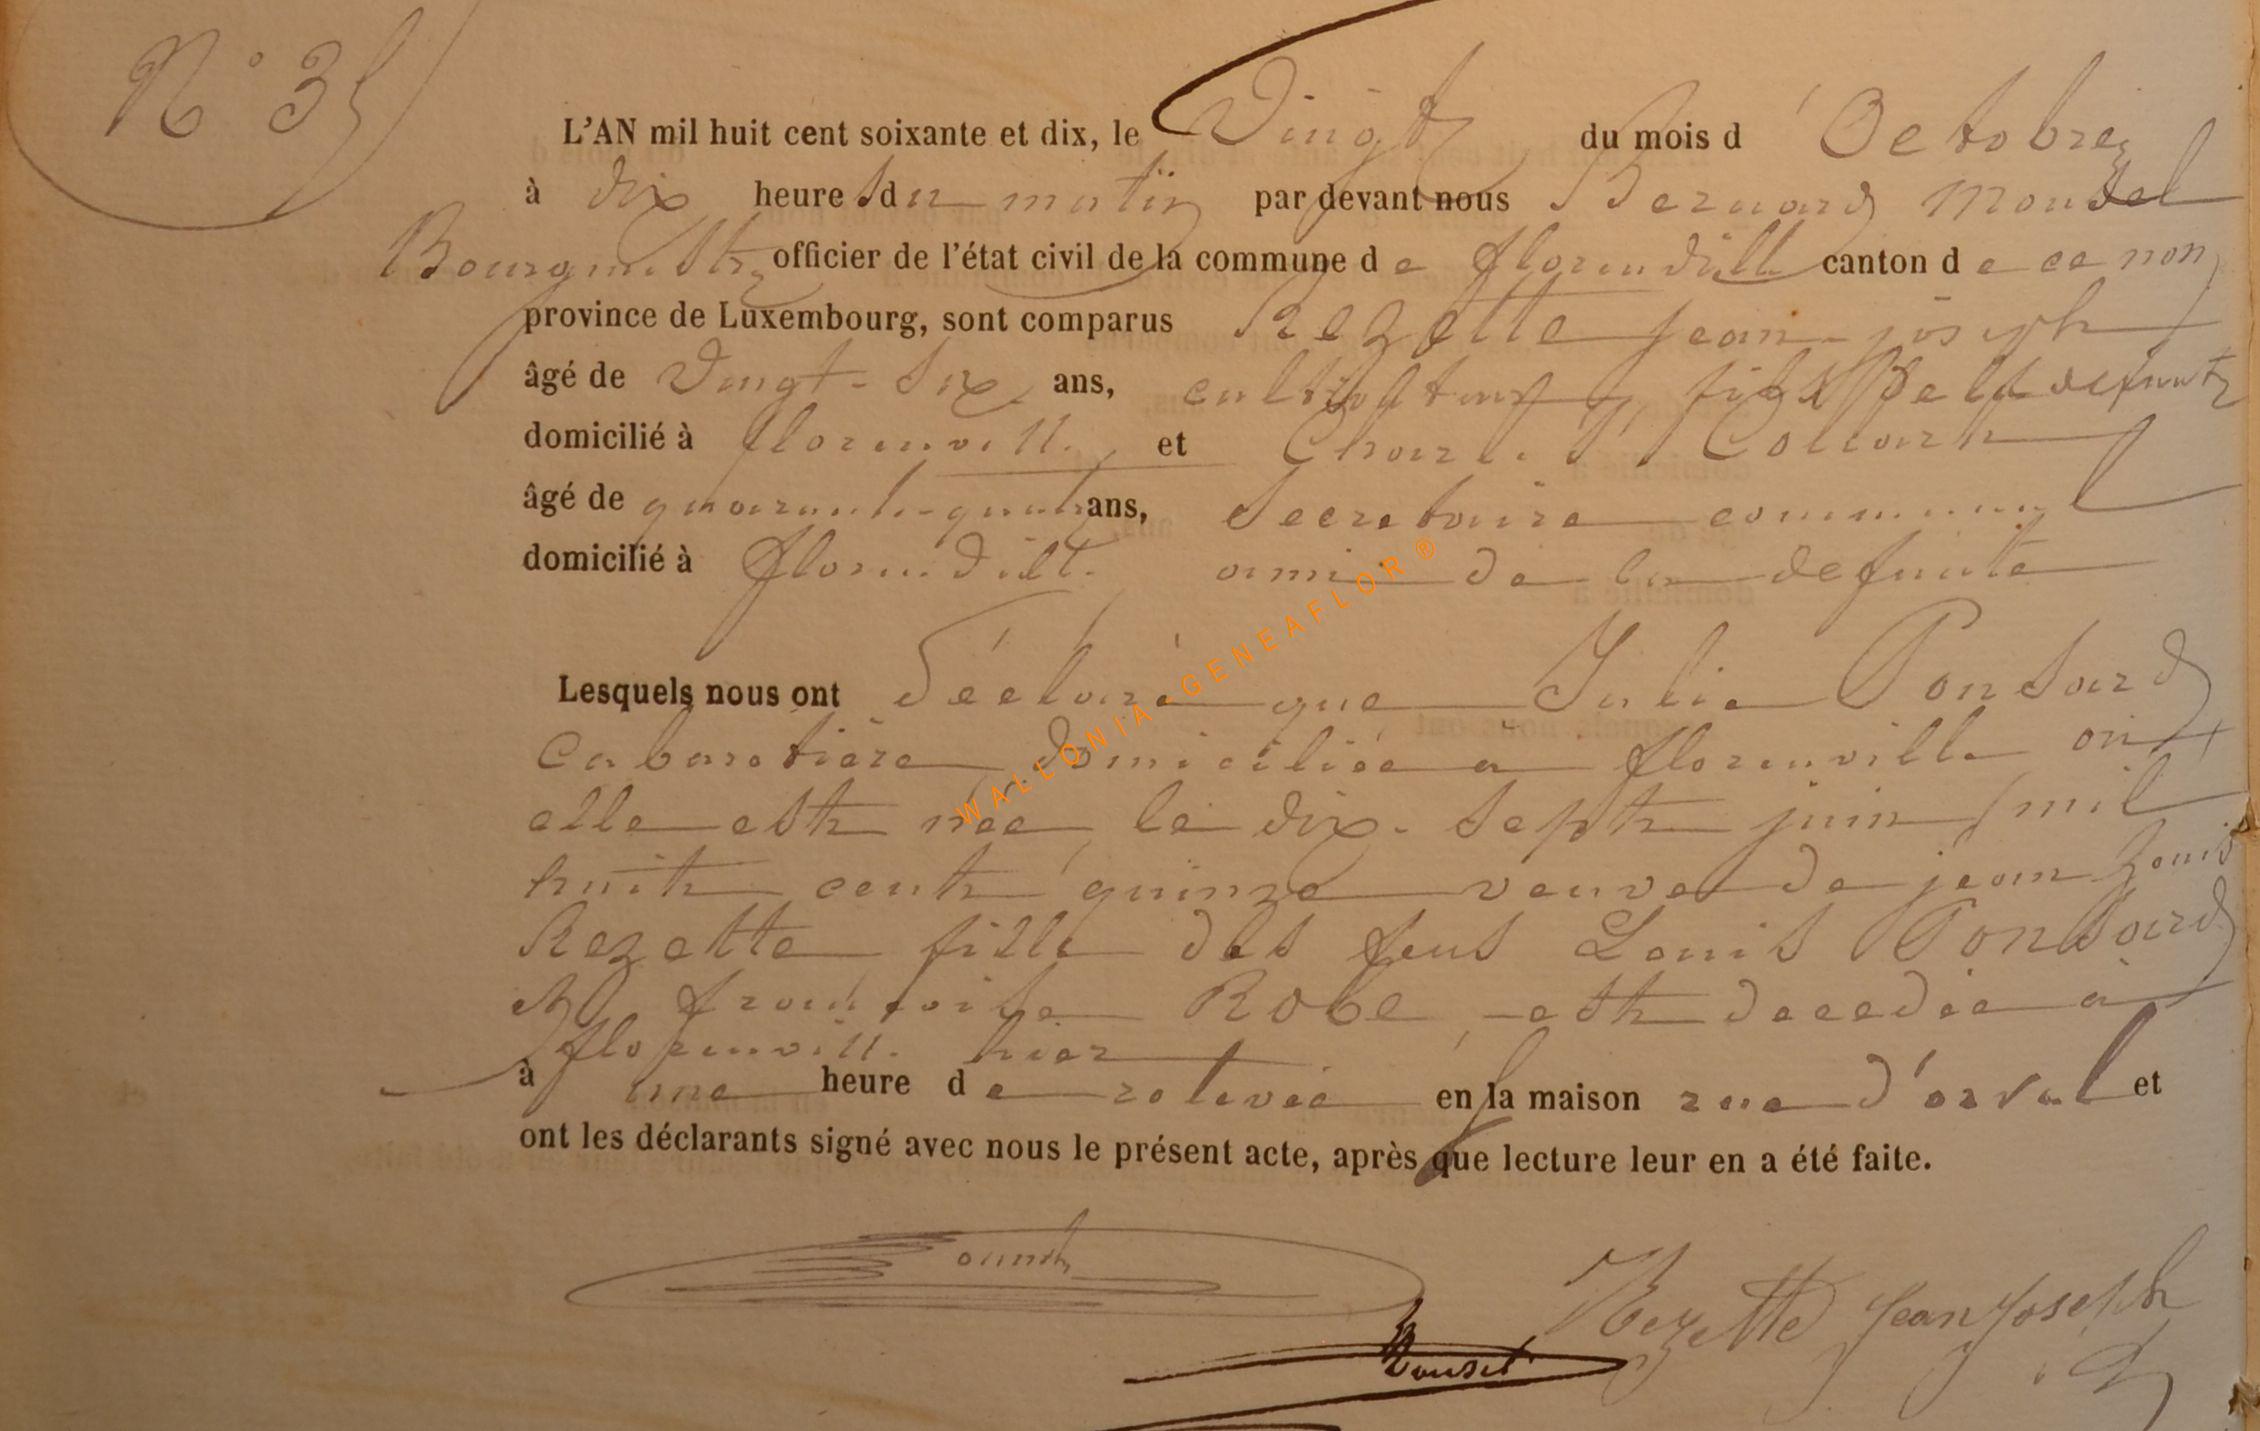 N° 35
L'AN mil huit cent soixante et dix, le Vingt du mois d'Octobre
à dix heures du matin par devant nous Bernard
Bourgmestre officier de l'état civil de la commune de florenville canton de ce nom
province de Luxembourg, sont comparus Rezette jean-joseph
âgé de vingt-six ans, cultivateur, fils de la defunte
domicilié à florenville et Charles Collard
âgé de quarante-quatre ans, Secretaire communal
domicilié à florenville ami de la defunte
Lesquels nous ont déclaré que Julie Ponsard
Cabaretière, domiciliée à florenville où
elle est née, le dix-sept juin mil
huit cent quinze veuve de jean Louis
Rezette fille des feus Louis Ponsard
et françoise Robe, est decedée à
florenville hier
à une heure de relevée en la maison rue d'orval et
ont les déclarants signé avec nous le présent acte, après que lecture leur en a été faite.
Rezette Jean Joseph
WALLONIA-GENEAFLOR ®